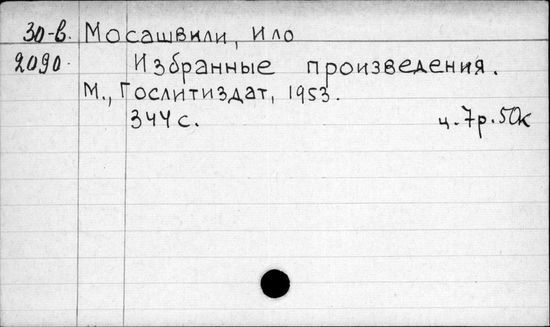 30-в. Мосашвили, Ило
2090. Избранные произведения.
М., Гослитиздат, 1953.
344 с. ц. 7р. 50к